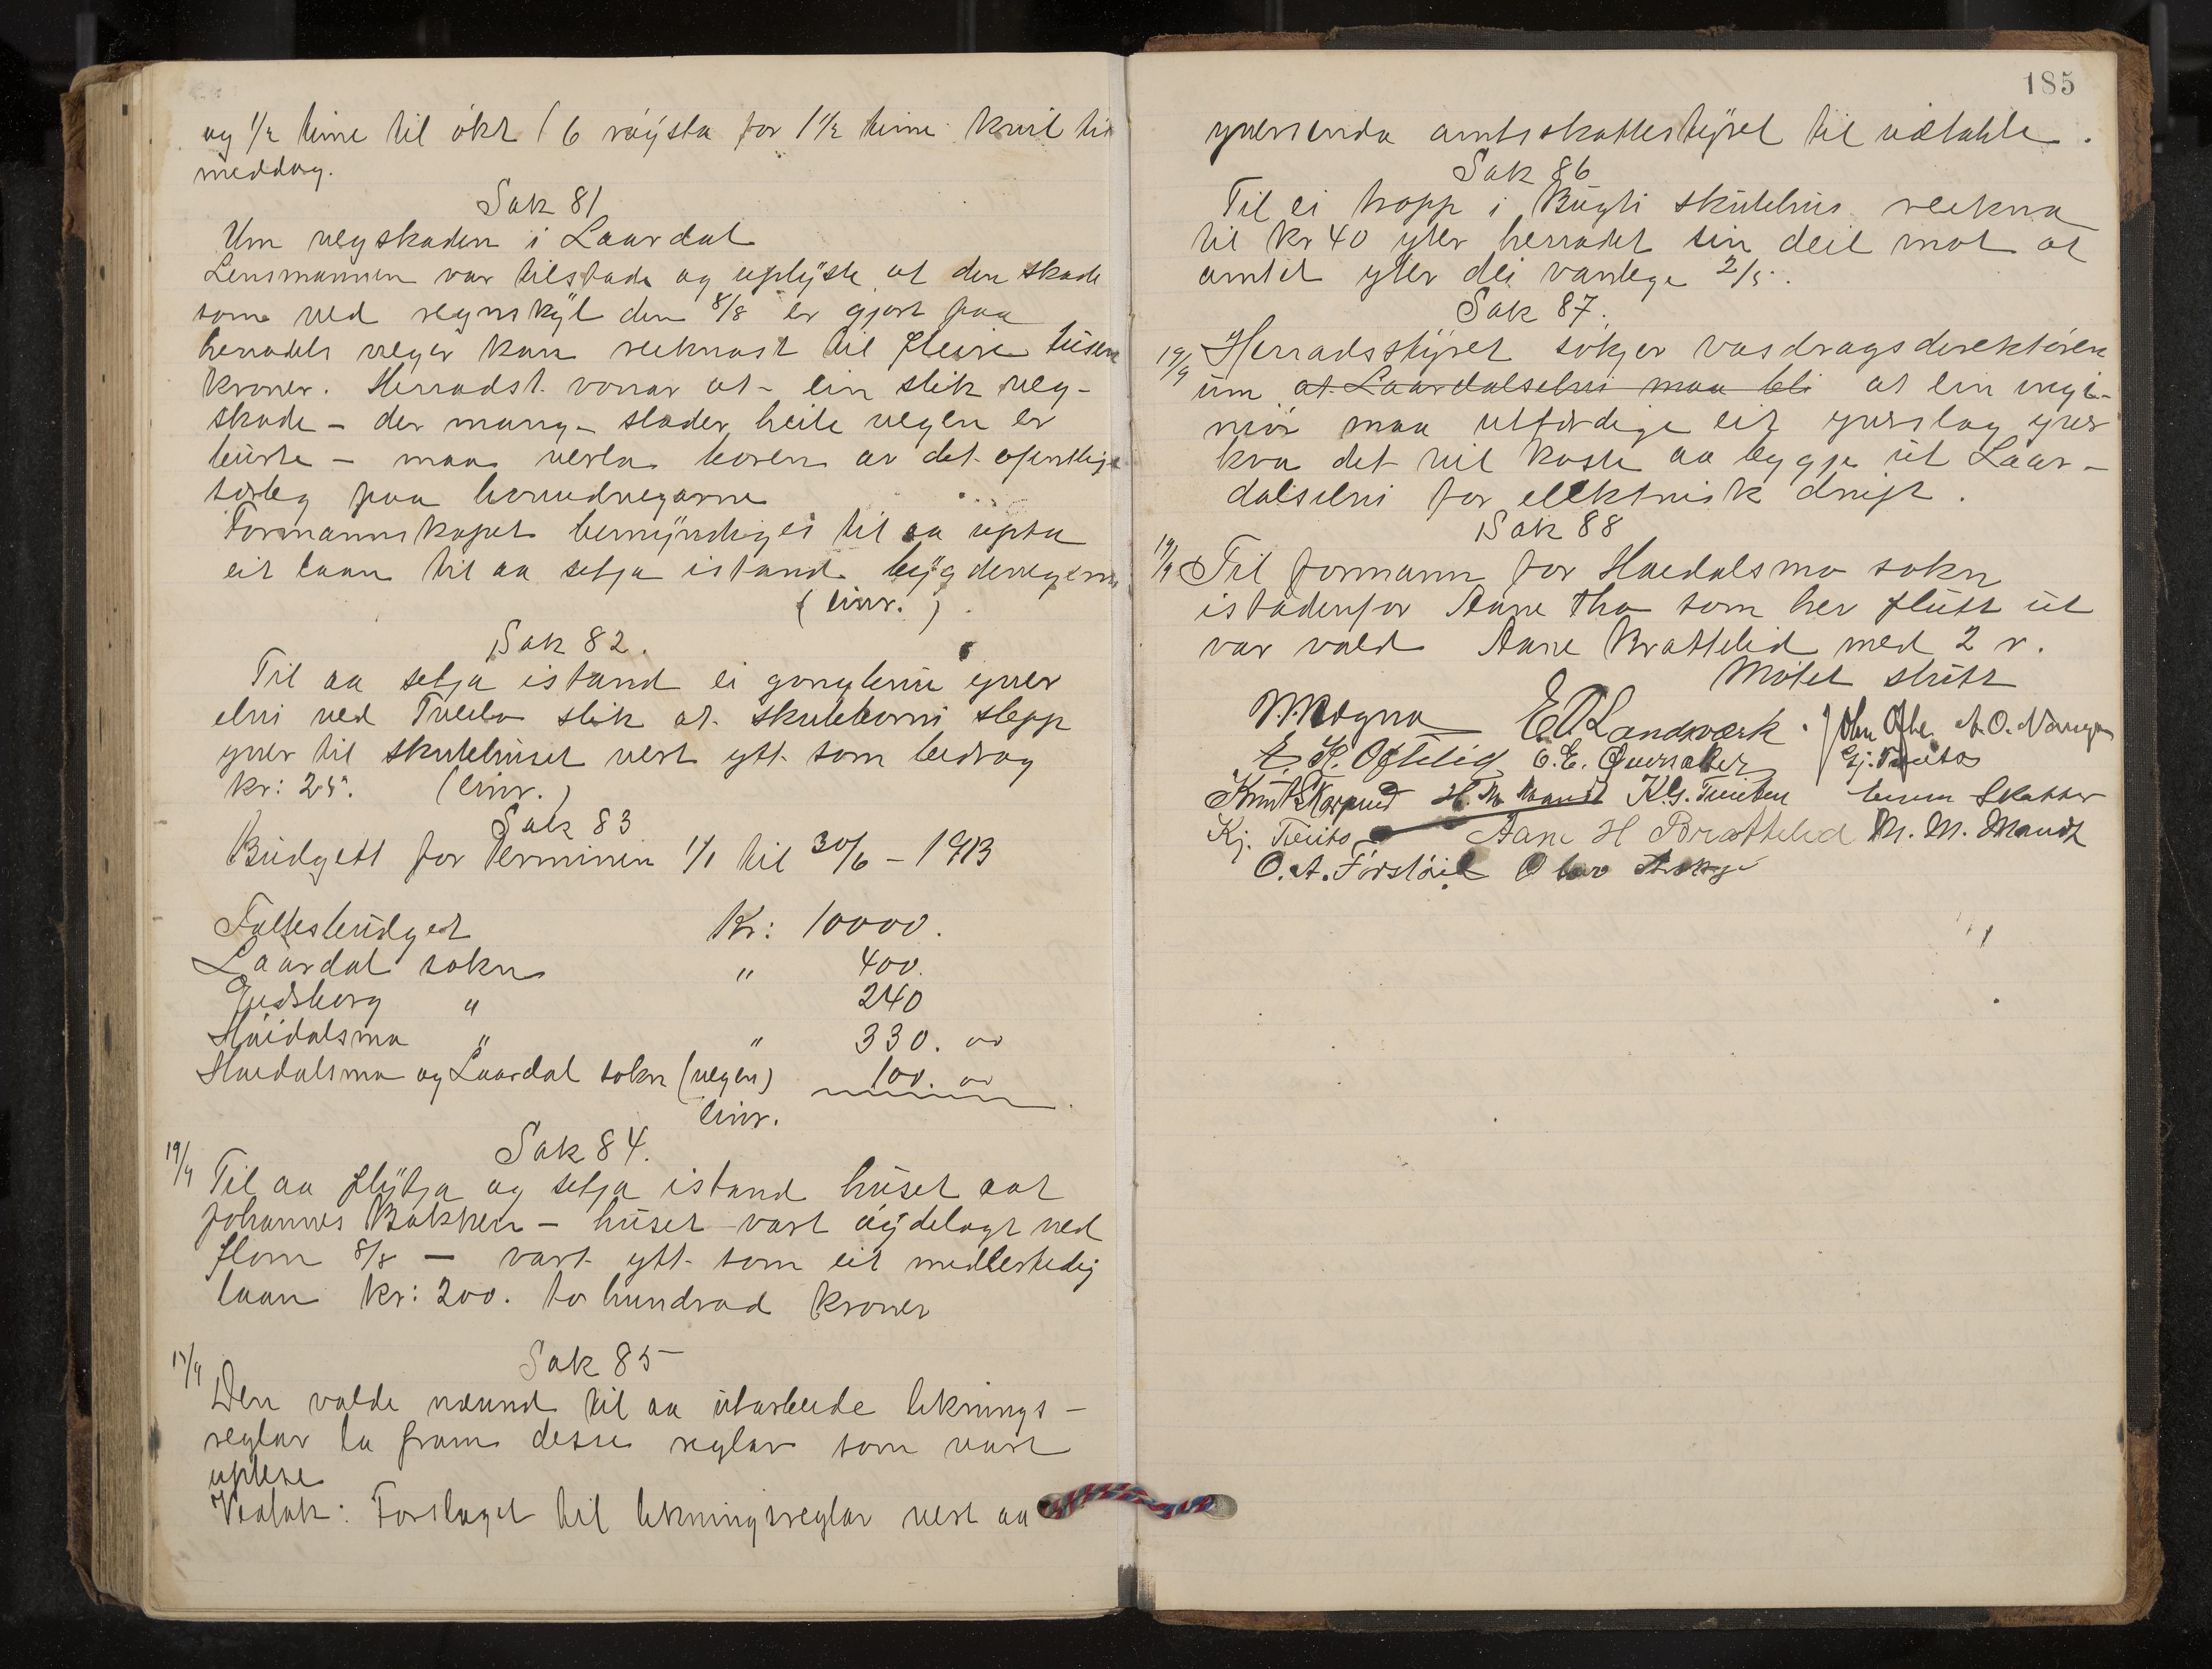 og 1/2 time til økt (6 røysta for 1 1/2 time kvil til
middag.
Sak 81
Um vegskaden i Laardal
Lensmannen var tilstade og uplyste at den skade
som ved regnskyl den 8/8 er gjort paa
herradets vegar kan reiknast til fleire tusen
kroner. Herradst. vonar at ein slik veg-
skade - der mang- stader heile vegen er
burte - maa verta boren av det ofentlige
serleg paa hovudvegarne
Formannskapet bemyndiges til aa upta
eit laan til aa setja istand bygdevegerne
(einr.)
Sak 82.
Til aa setja istand ei gongbru yver
elvi ved Tveito slik at skuleborni slepp
yver til skulehuset vert ytt som bidrag
kr: 25. (einr.)
Sak 83
Budgett for Terminen 1/1 til 30/6 - 1913
Fellesbudget Kr: 10000.
Laardal sokn " 400.
Eidsborg " 240
Høidalsmo " " 330. 00
Høidalsmo og Laardal sokn (vegen) 100. 00
einr.
19/9 Sak 84.
Til aa flytja og setja istand huset aat
Johannes Bakken - huset vart øydelagt ved
flom 8/8 - vart ytt som eit midlertidig
laan kr: 200. to hundrad kroner
Sak 85
Den valde nemnd til aa utarbeide liknings-
reglar la fram desse reglar som vart
uplese
Vedtak: Forslaget til likningsreglar vert aa
185
yversenda amtsskattestyret til vedtekt.
Sak 86
Til ei tropp i Bugti skulehus reikna
til kr 40 yter herradet sin deil mot at
amtet yter dei vanlege 2/5.
Sak 87.
19/9 Herradsstyret søkjer vasdragsdirektøren
um at Laardalselvi maa bli at ein ingi-
niør maa utferdige eit yverslag yver
kva det vil koste aa byggje ut Laar-
dalselvi for elektrisk drift.
Sak 88
19/9 Til formann for Høidalsmo sokn
istadenfor Aane Tho som her flutt ut
var vald Aane Brattelid med 2 r.
Møtet slutt
E. Landsverk
Ofte
H. Oftelid E. E. Øveraker Gj. Tveito
Knut Skarprud K. G. Tveiten Skatter
Kj. Tveito Aane H Brattelid M. M. Mandt
O. A. Førstøil Olav